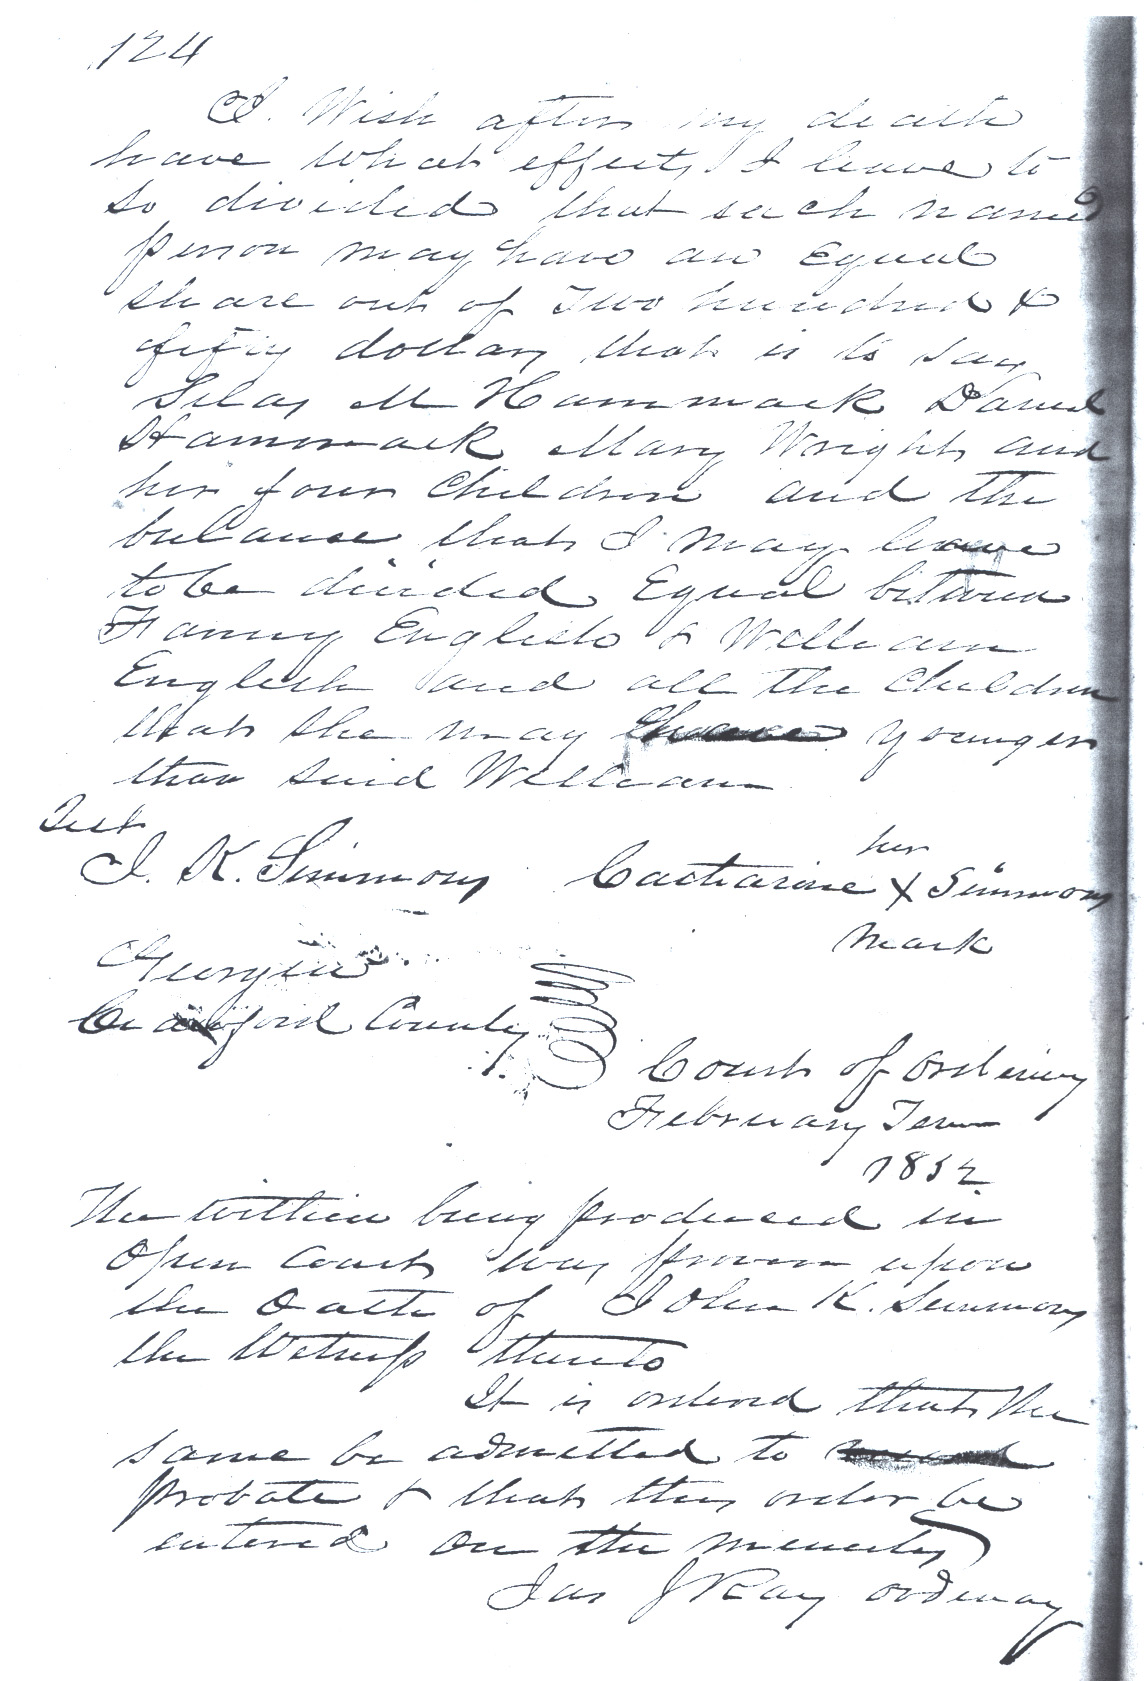 124
I. Wish after my death
have what effects I leave to
so divided that each named
person may have an Equal
share out of Two hundred &
fifty dollars that is to say
Silas M Hammack Daniel
Hammack Mary Wright and
her four Children and the
balance that I may leave
to be divided Equal between
Fanny English & William
English and all the Children
that she may have younger
than said William
Test
J. K. Simmons Catharine her X mark Simmons
Georgia
Crawford County
Court of Ordinary
February Term
1852
The within being produced in
Open Court was proven upon
the Oath of John K. Simmons
the Witness thereto
It is ordered that the
same be admitted to
probate & that this order be
entered on the minutes
Jas J Ray ordinary